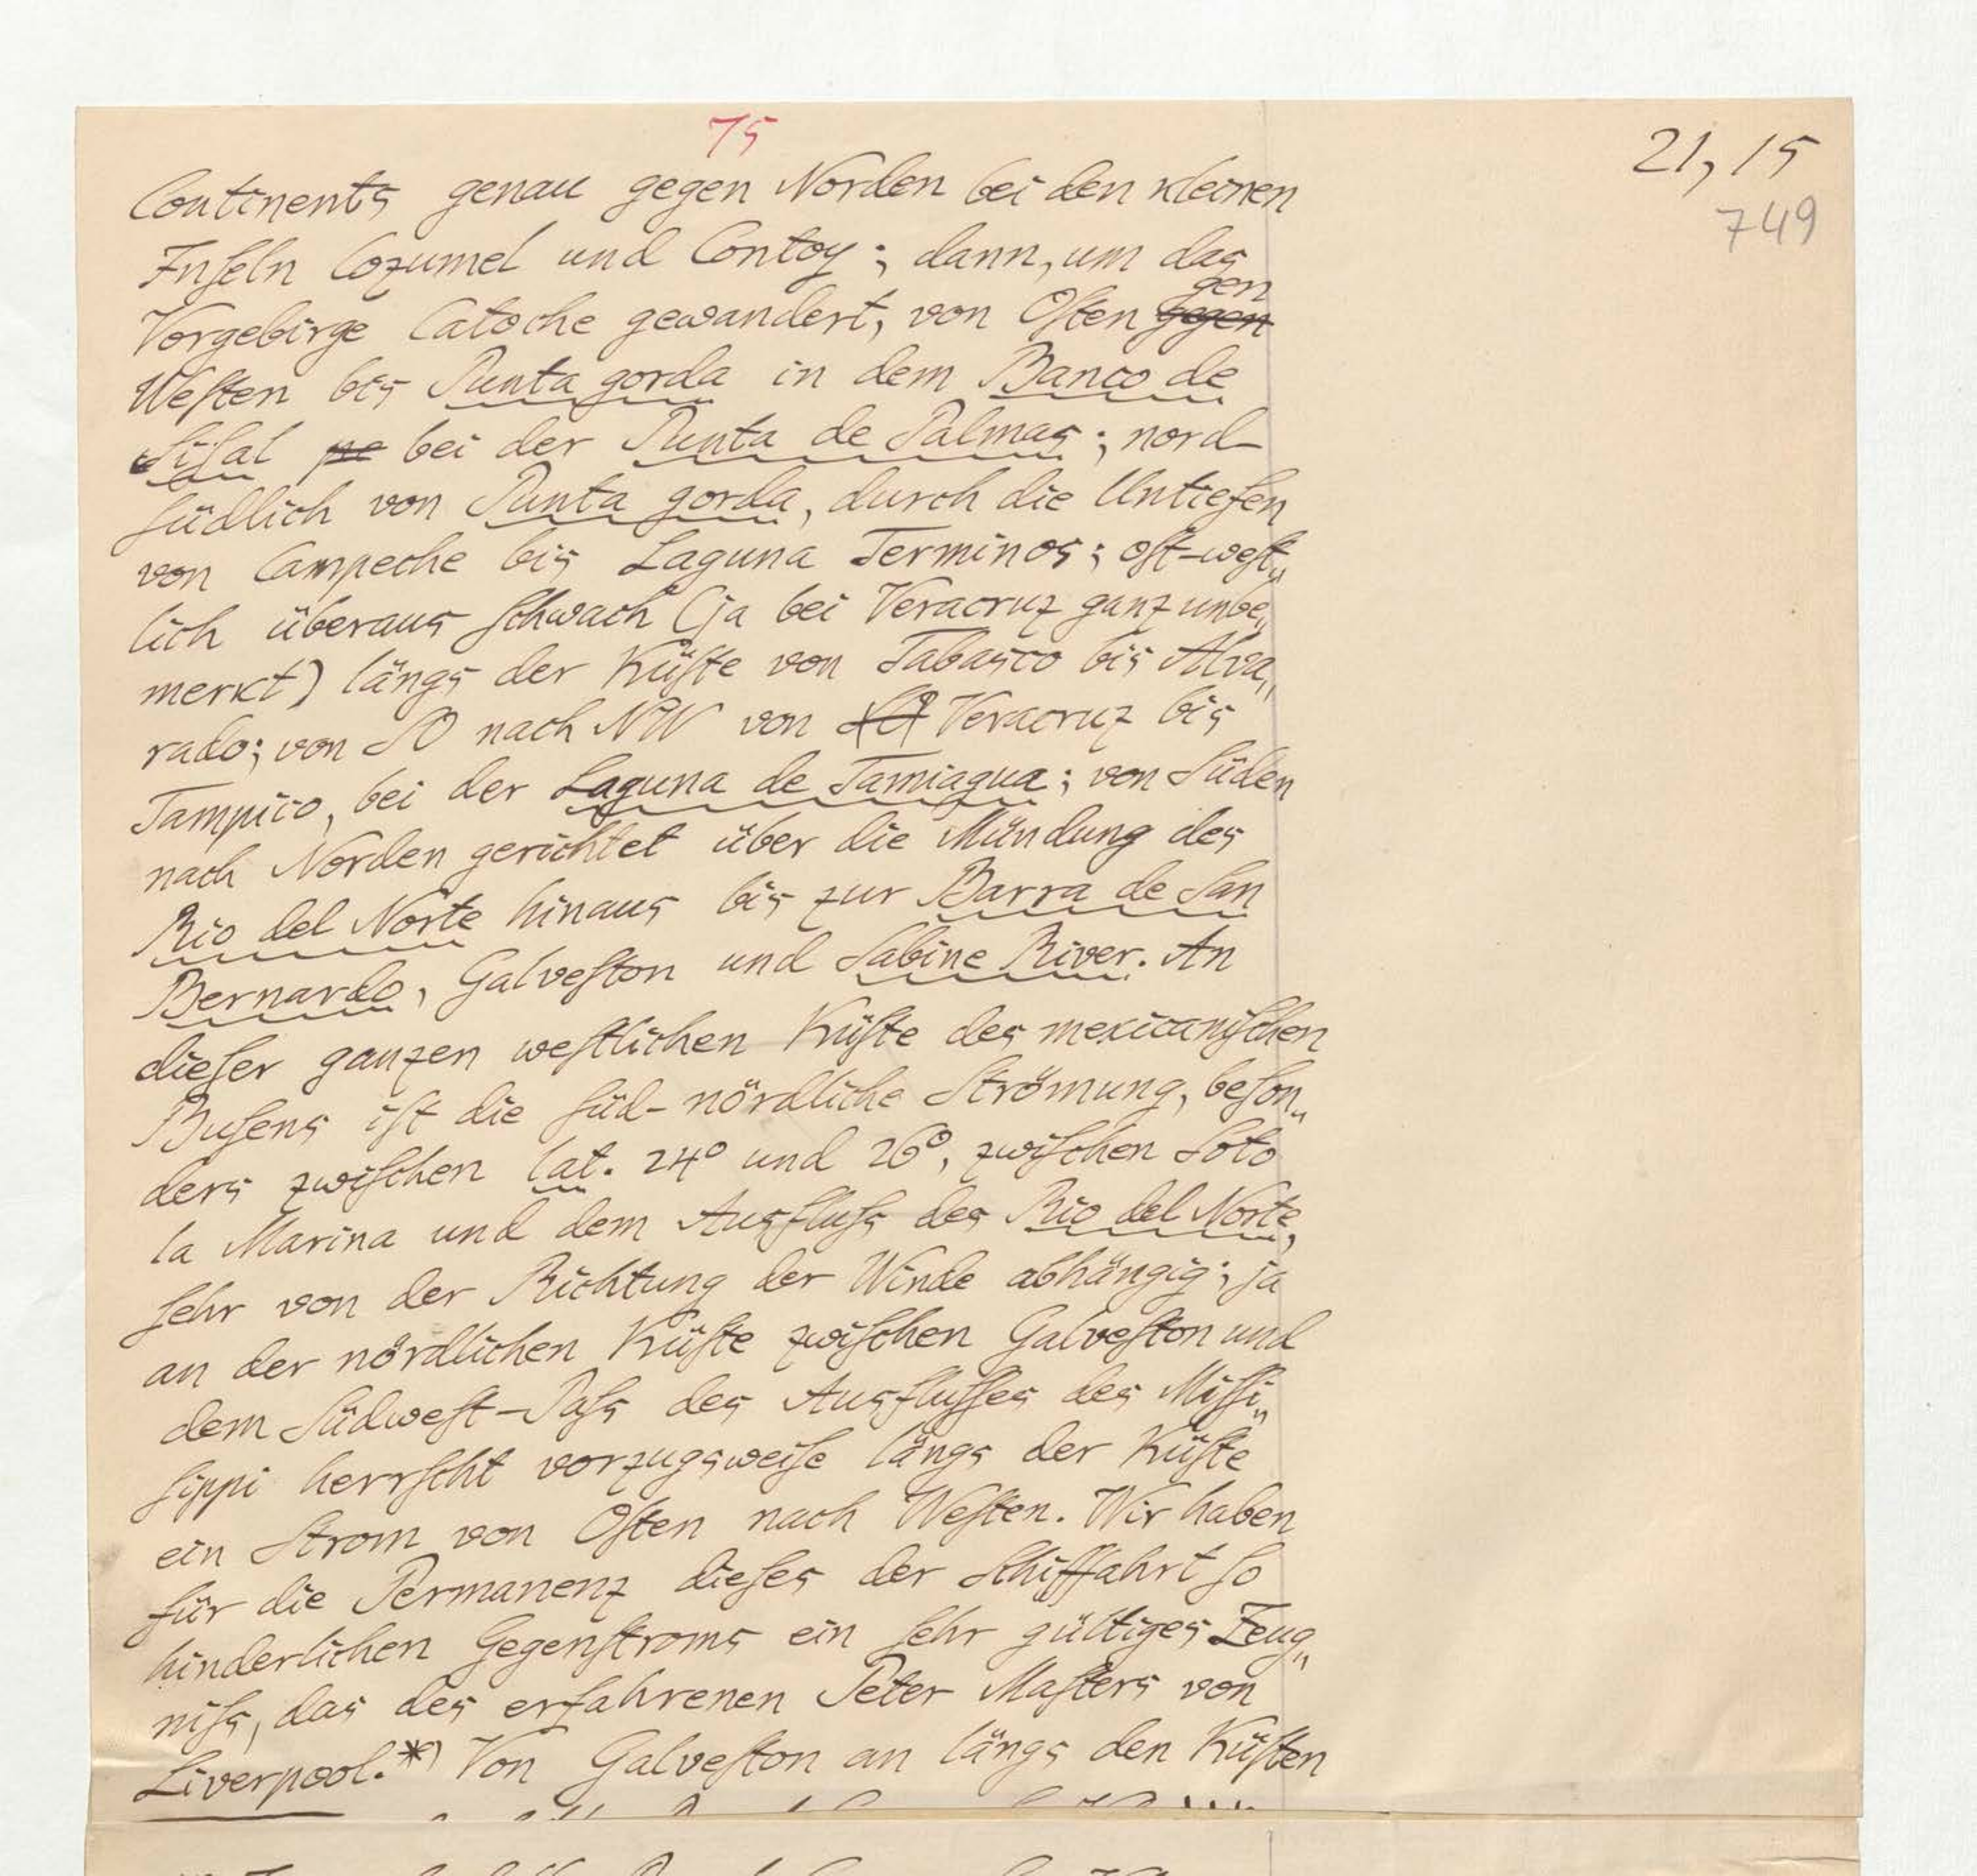 75
21, 15
749
Continents genau gegen Norden bei den kleinen
Inſeln Cozumel und Contoy; dann, um das
Vorgebirge Catoche gewandert, von Oſten gegen gen
Weſten bis Punta gorda in dem Banco de
Siſal pe bei der Punta de Palmas; nord-
ſüdlich von Punta gorda, durch die Untiefen
von Campeche bis Laguna Terminos; oſt-weſt„
lich überaus ſchwach (ja bei Veracruz ganz unbe„
merkt) längs der Küſte von Tabasco bis Alva„
rado; von SO nach NW von Veracruz bis
Tampico, bei der Laguna de Tamiagua; von Süden
nach Norden gerichtet über die Mündung des
Rio del Norte hinaus bis zur Barra de San
Bernardo, Galveſton und Sabine River. An
dieſer ganzen weſtlichen Küſte des mexicaniſchen
Buſens iſt die ſüd-nördliche Strömung, beſon„
ders zwiſchen lat. 24° und 26°, zwiſchen Soto
la Marina und dem Ausfluſs des Rio del Norte,
ſehr von der Richtung der Winde abhängig; ja
an der nördlichen Küſte zwiſchen Galveſton und
dem Südweſt-Paſs des Ausfluſſes des Miſſi„
ſippi herrſcht vorzugsweiſe längs der Küſte
ein Strom von Oſten nach Weſten. Wir haben
für die Permanenz dieſes der Schiffahrt ſo
hinderlichen Gegenſtroms ein ſehr gültiges Zeug„
niſs, das des erfahrenen Peter Maſters von
Liverpool.*) Von Galveſton an längs den Küſten